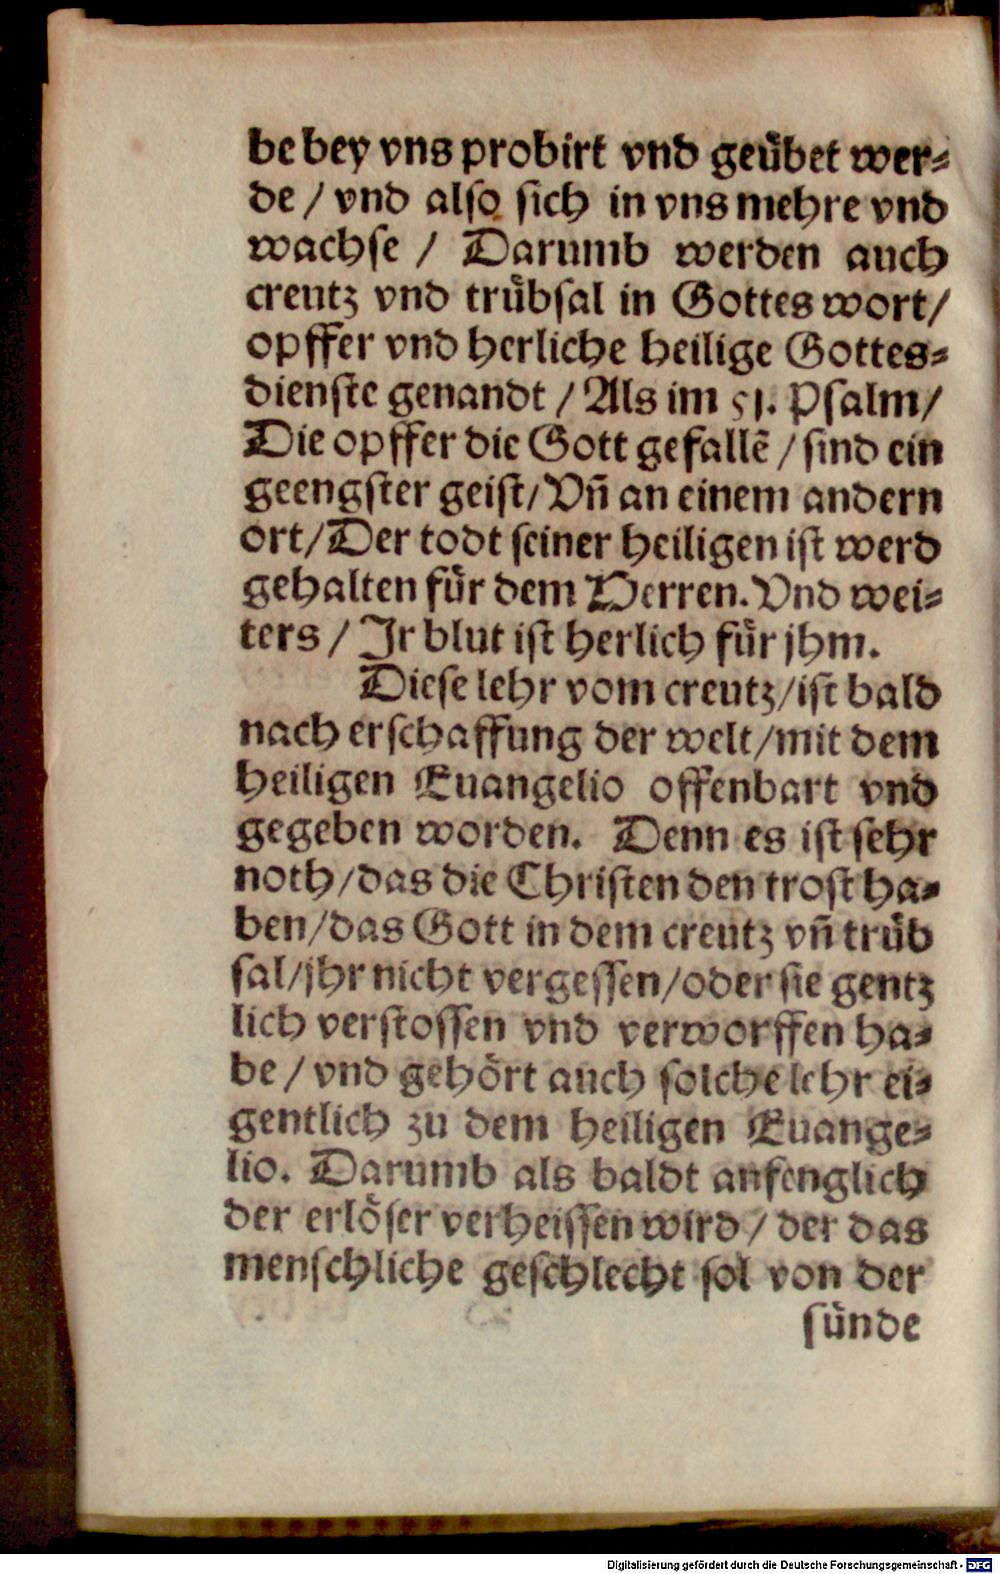 be bey vns probirt vnd geuͤbet wer⸗
de / vnd also sich in vns mehre vnd
wachse / Darumb werden auch
creutz vnd truͤbsal in Gottes wort /
opffer vnd herliche heilige Gottes⸗
dienste genandt / Als im 51. Psalm /
Die opffer die Gott gefallẽ / sind ein
geengster geist / Vñ an einem andern
ort / Der todt seiner heiligen ist werd
gehalten fuͤr dem Herren. Vnd wei⸗
ters / Jr blut ist herlich fuͤr jhm.
Diese lehr vom creutz / ist bald
nach erschaffung der welt / mit dem
heiligen Euangelio offenbart vnd
gegeben worden. Denn es ist sehr
noth / das die Christen den trost ha⸗
ben / das Gott in dem creutz vñ truͤb
sal / jhr nicht vergessen / oder sie gentz
lich verstossen vnd verworffen ha⸗
be / vnd gehoͤrt auch solche lehr ei⸗
gentlich zu dem heiligen Euange⸗
lio. Darumb als baldt anfenglich
der erloͤser verheissen wird / der das
menschliche geschlecht sol von der
suͤnde
Digitalisierung gefördert durch die Deutsche Forschungsgemeinschaft - DFG